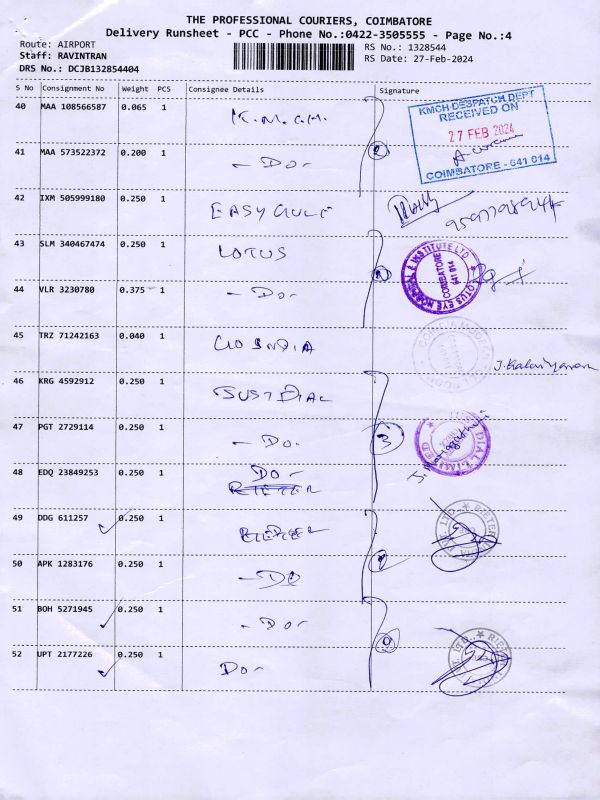 THE PROFESSIONAL COURIERS, COIMBATORE
Delivery Runsheet - PCC - Phone No.:0422-3505555 - Page No.:4
Route: AIRPORT RS No.: 1328544
Staff: RAVINTRAN RS Date: 27-Feb-2024
DRS No.: DCJB132854404
S No Consignment No Weight PCS Consignee Details Signature
40 MAA 108566587 0.065 1 K.M.C.H.
KMCH DESPATCH DEPT
RECEIVED ON
27 FEB 2024
COIMBATORE - 641 014
41 MAA 573522372 0.200 1 - Do - 2
42 IXM 505999180 0.250 1 EASY
43 SLM 340467474 0.250 1 LOTUS
LOTUS EYE HOSPITAL & INSTITUTE LTD
COIMBATORE
641 014
44 VLR 3230780 0.375 1 - Do - 2
45 TRZ 71242163 0.040 1
46 KRG 4592912 0.250 1 JUST DIAL
47 PGT 2729114 0.250 1 - Do - 3
DIAL LIMITED
48 EDQ 23849253 0.250 1 Do -
49 DDG 611257 0.250 1
50 APK 1283176 0.250 1 - Do
51 BOH 5271945 0.250 1 - Do -
52 UPT 2177226 0.250 1 Do -